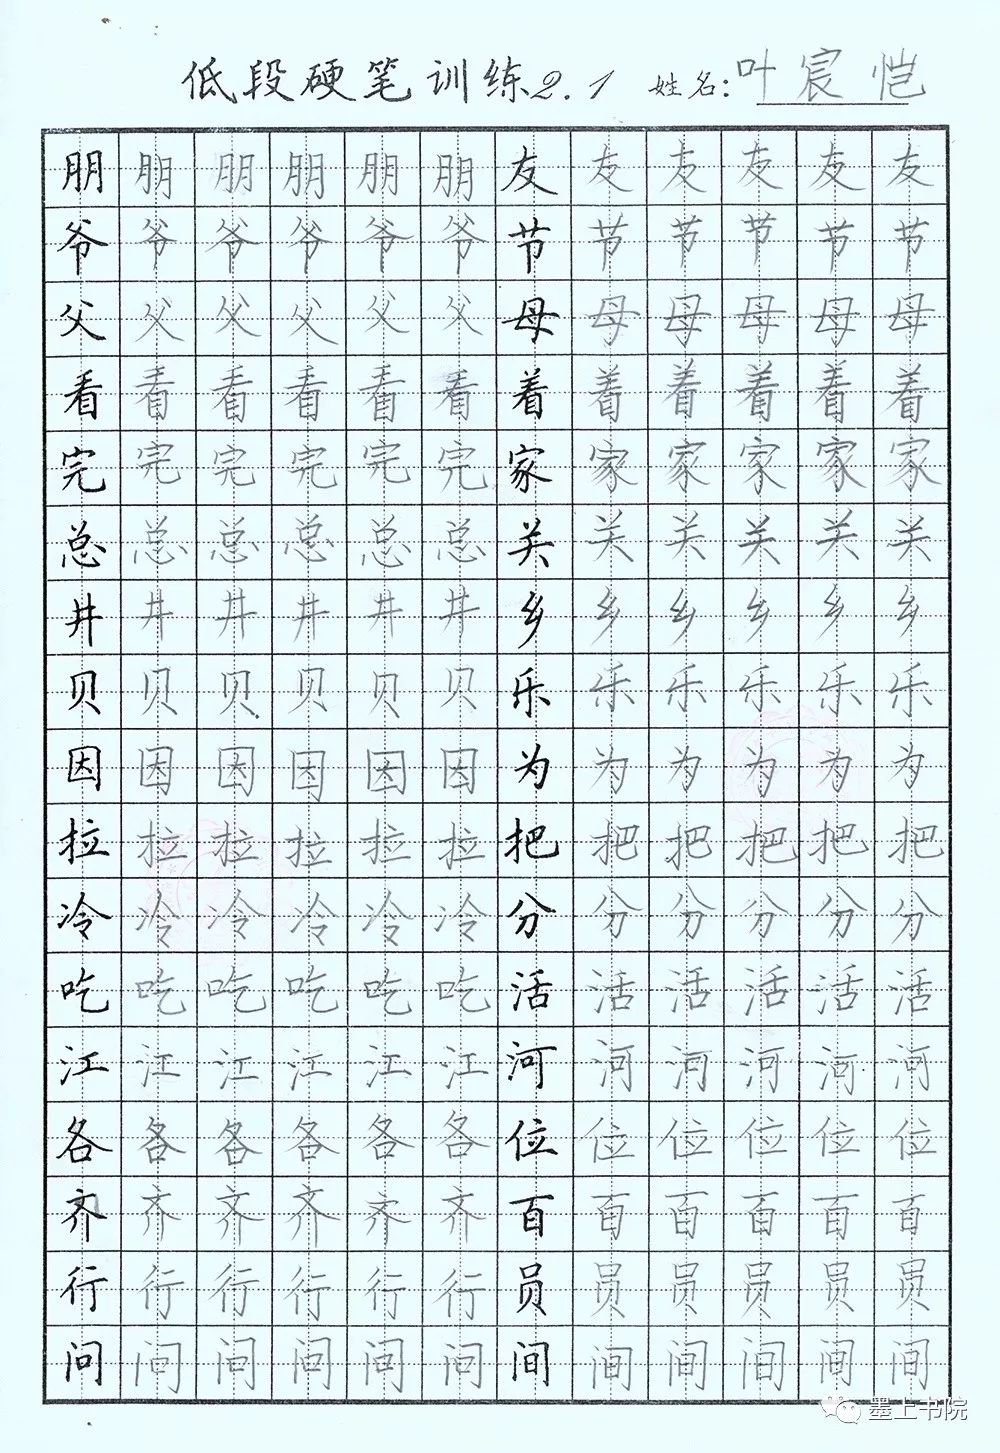 低段硬笔训练2.1 姓名:叶宸恺
朋朋朋朋朋朋友友友友友友
爷爷爷爷爷爷节节节节节节
父父父父父父母母母母母母
看看看看看看着着着着着着
完完完完完完家家家家家家
总总总总总总关关关关关关
井井井井井井乡乡乡乡乡乡
贝贝贝贝贝贝乐乐乐乐乐乐
因因因因因因为为为为为为
拉拉拉拉拉拉把把把把把把
冷冷冷冷冷冷分分分分分分
吃吃吃吃吃吃活活活活活活
江江江江江江河河河河河河
各各各各各各位位位位位位
齐齐齐齐齐齐百百百百百百
行行行行行行员员员员员员
问问问问问问间间间间间间
墨上书院